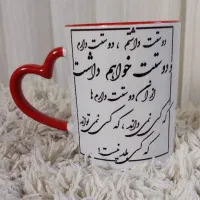 دوستت داشتم ، دوستت دارم
و دوستت خواهم داشت
از آن دوستت دارم ها
که کسی نمی داند ، که کسی نمی تواند
که کسی بلد نیست !